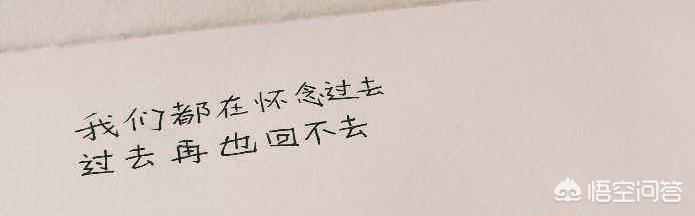 我们都在怀念过去
过去再也回不去
悟空问答